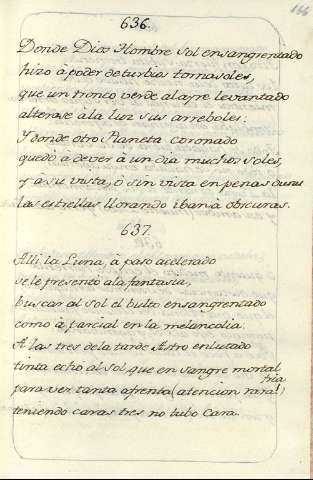 166
636.
Donde Dios Hombre sol ensangrentado
hizo à poder de turbios tornasoles,
que un tronco verde al ayre levantado
alterase à la luz sus arreboles:
Y donde otro Planeta coronado
quedó à dever à un dia muchos soles,
y à su vista, ò sin vista en penas duras
las estrellas llorando iban à obscuras.
637.
Alli la Luna, à paso acelerado
se le presentó a la fantasia,
buscar al sol el bulto ensangrentado
como à parcial en la melancolia.
A las tres de la tarde Astro enlutado
tinta echo al sol, que en sangre mortal
tria
para ver tanta afrenta (atencion rara!)
teniendo caras tres no tubo Cara.